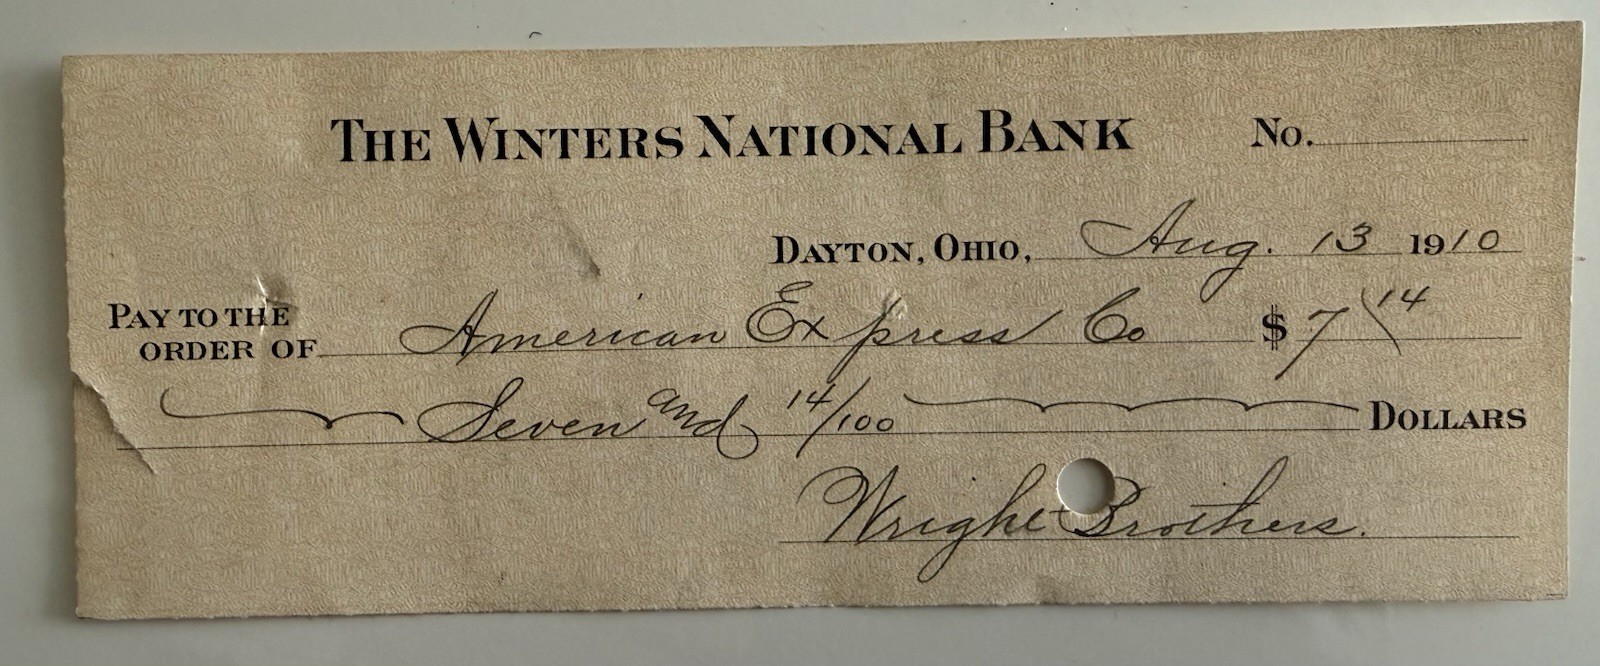 THE WINTERS NATIONAL BANK No.
DAYTON, OHIO, Aug. 13 1910
PAY TO THE
ORDER OF American Express Co $ 7 14
Seven and 14/100 DOLLARS
Wright Brothers.